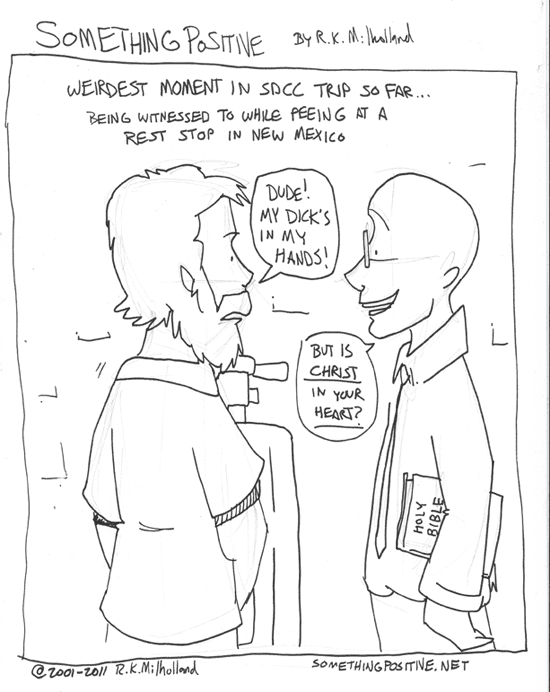 SOMETHING POSITIVE BY R.K. Milholland
WEIRDEST MOMENT IN SDCC TRIP SO FAR...
BEING WITNESSED TO WHILE PEEING AT A
REST STOP IN NEW MEXICO
DUDE!
MY DICK'S
IN MY
HANDS!
BUT IS
CHRIST
IN YOUR
HEART?
HOLY
BIBLE
© 2001-2011 R.K. Milholland SOMETHINGPOSITIVE.NET